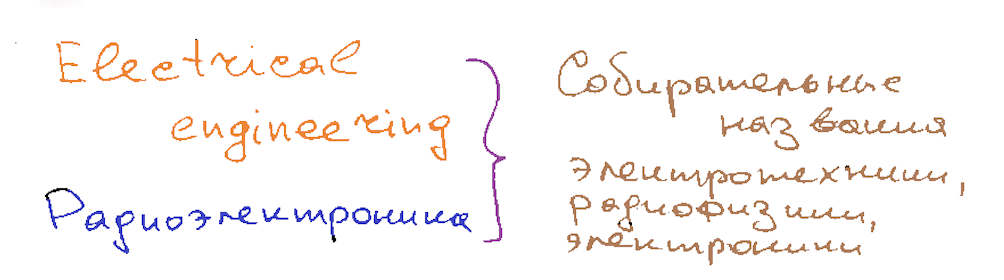 Electrical
engineering
Радиоэлектроника
Собирательные
названия
электротехники,
радиофизики,
электроники